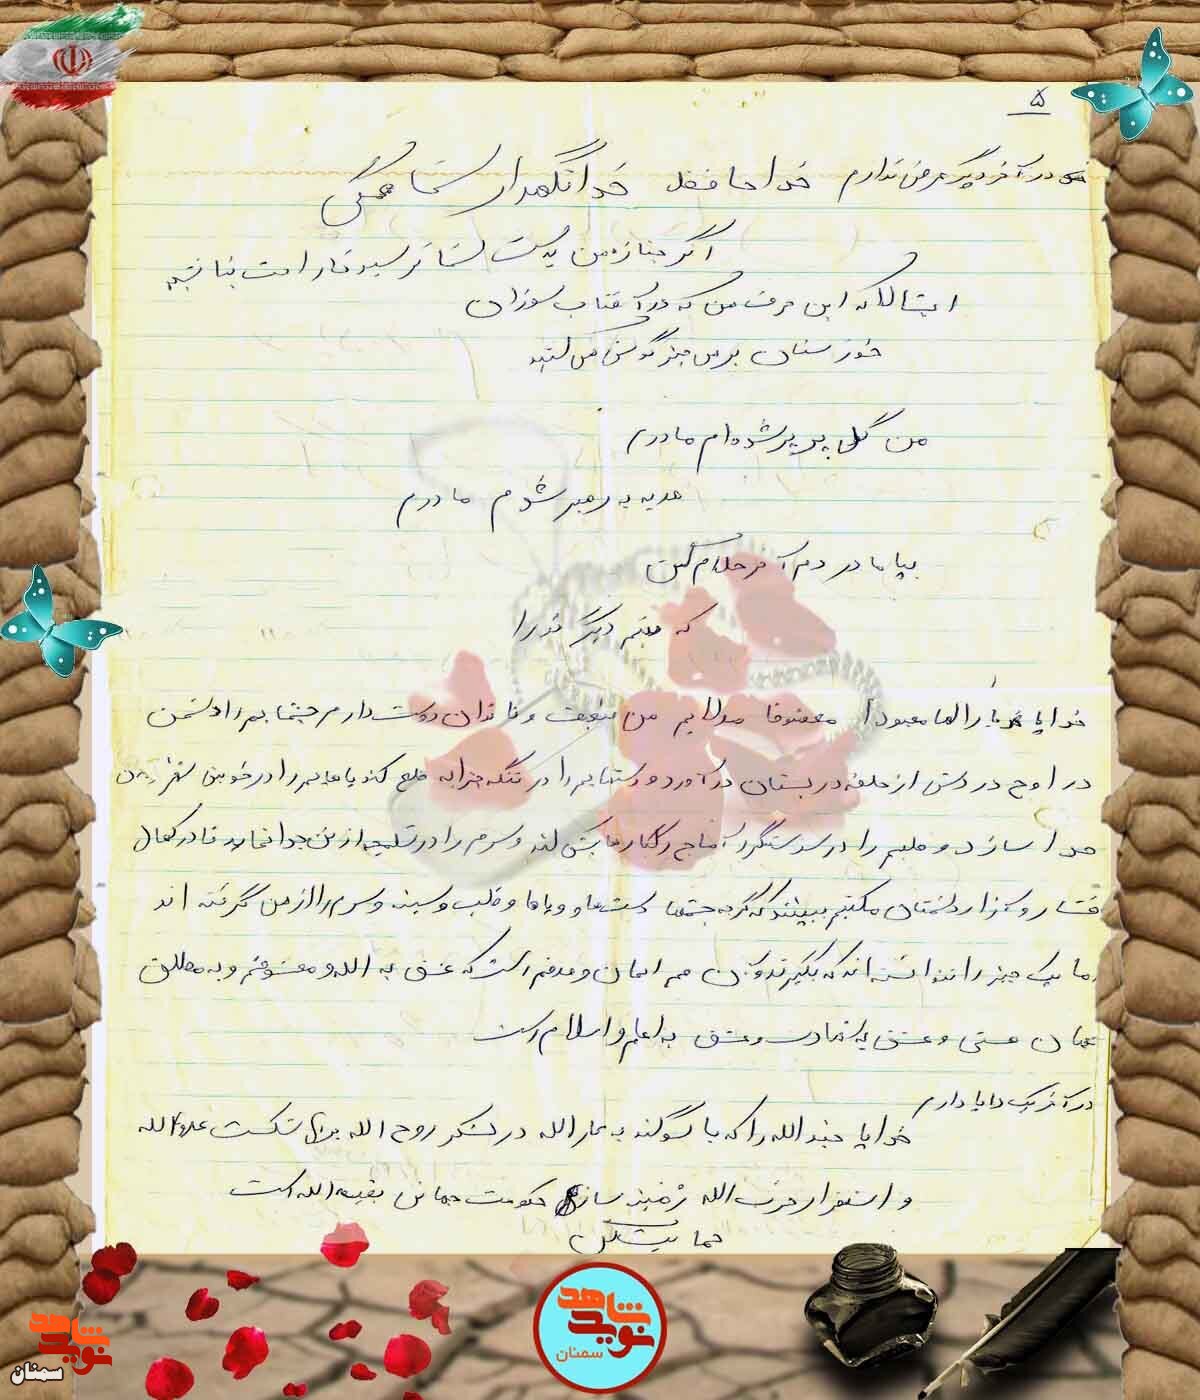 ۵
در آخر دیگر عرضی ندارم خداحافظ خدا نگهدار شما همگی
اگر جنازه من بدست شما نرسید ناراحت نباشید
انشالا که این حرف من که در آفتاب سوزان
خوزستان بر می خیزد گوش می کنید
من گل پرپر شده ام مادرم
هدیه به رهبر شدم مادرم
بیا مادر دم آخر حلالم کن
که نبینم دیگر تو را
خدایا بارالها معبودا معشوقا مولایم من ضعیف و ناتوان دوست دارم چشمایم را دشمن
در اوج دردش از حدقه در بستان در آورد و دستهایم را در تنگه چزابه قطع کند پاهایم را در خونین شهر از بدن
جدا سازد و قلبم را در سوسنگرد آماج رگبارهایش کند و سرم را در شلمچه از تن جدا نماید تا در کمال
فشار و آزار دشمنان مکتبم ببینند که گرچه چشمها دست ها و پاها و قلب و سینه و سرم را از من گرفته اند
اما یک چیز را نتوانسته اند که بگیرند و آن هم ایمان و هدفم است که عشق به الله و معشوقم و به مطلق
جهان هستی و عشق به شهادت و عشق به امام و اسلام است
در آخر یک دعا دارم
خدایا جندالله را که با سوگند به ثارالله در لشکر روح الله برای شکست عدوالله
و استقرار حزب الله زمینه ساز حکومت جهانی بقیه الله است
حمایت کن
نوید شاهد
سمنان
نوید شاهد
سمنان